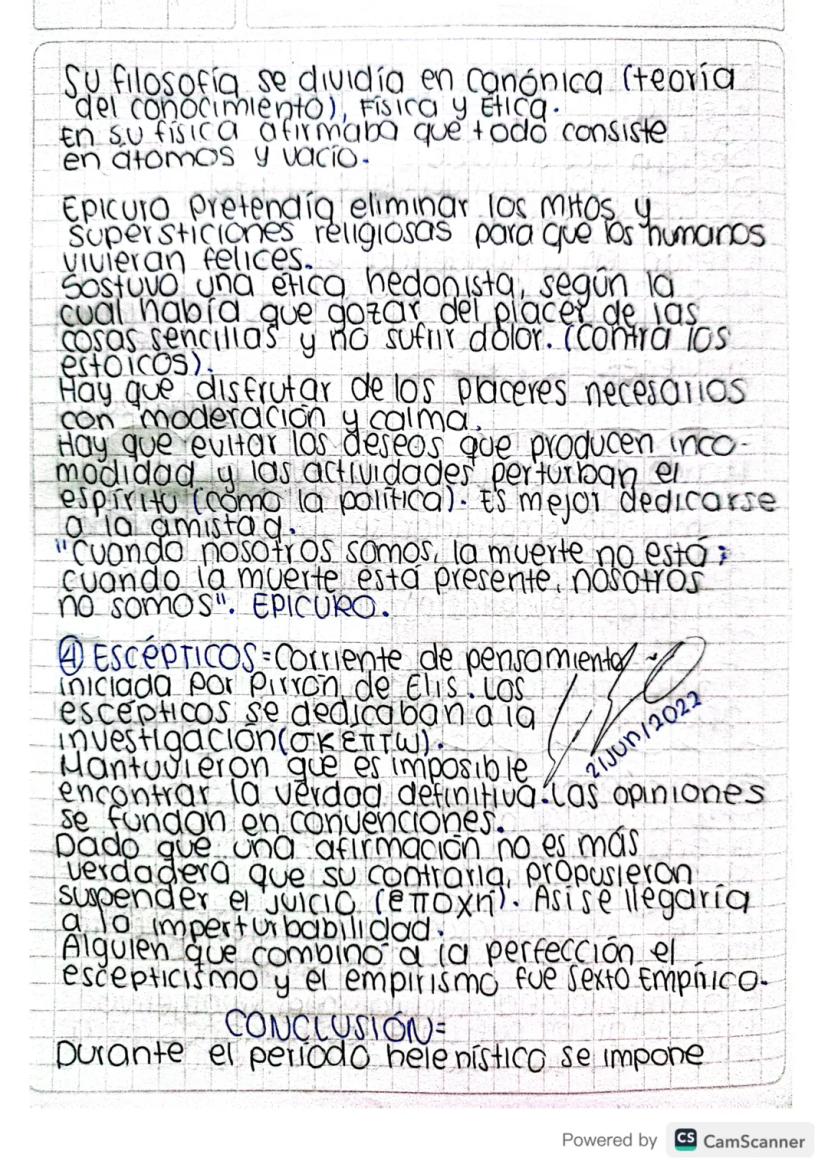 Su filosofía se dividía en canónica (teoría
del conocimiento), Física y Ética.
En su física afirmaba que todo consiste
en átomos y vacío.
Epicuro pretendía eliminar los mitos y
supersticiones religiosas para que los humanos
vivieran felices.
Sostuvo una ética hedonista, según la
cual había que gozar del placer de las
cosas sencillas y no sufrir dolor. (Contra los
estoicos).
Hay que disfrutar de los placeres necesarios
con moderación y calma.
Hay que evitar los deseos que producen inco-
modidad y las actividades perturban el
espíritu (como la política). Es mejor dedicarse
a la amistad.
"Cuando nosotros somos, la muerte no está;
cuando la muerte está presente, nosotros
no somos". EPICURO.
④ ESCÉPTICOS=Corriente de pensamiento
iniciada por Pirrón de Elis. Los
escépticos se dedicaban a la
investigación (σκέπτω).
21/Jun/2022
Mantuvieron que es imposible
encontrar la verdad definitiva. Las opiniones
se fundan en convenciones.
Dado que una afirmación no es más
verdadera que su contraria, propusieron
suspender el juicio (εποχή). Así se llegaría
a la imperturbabilidad.
Alguien que combinó a la perfección el
escepticismo y el empirismo fue Sexto Empírico.
CONCLUSIÓN=
Durante el período helenístico se impone
Powered by CS CamScanner